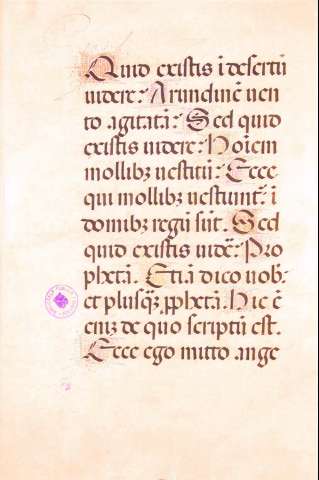 Quid existis ı̄ desertū
uidere: Arundinē uen
to agitatā: Sed quid
existis uidere: Hoīem
mollibꝫ uestitū: Ecce
qui mollibꝫ uestiunt᷑ ı̄
domibꝫ regū sūt. Sed
quid existis uidē: Pro
phetā. Etiā dico uob᷒
et plusqꝫ ꝓphetā. Hic ē
enīꝫ de quo scriptū est.
Ecce ego mitto ange